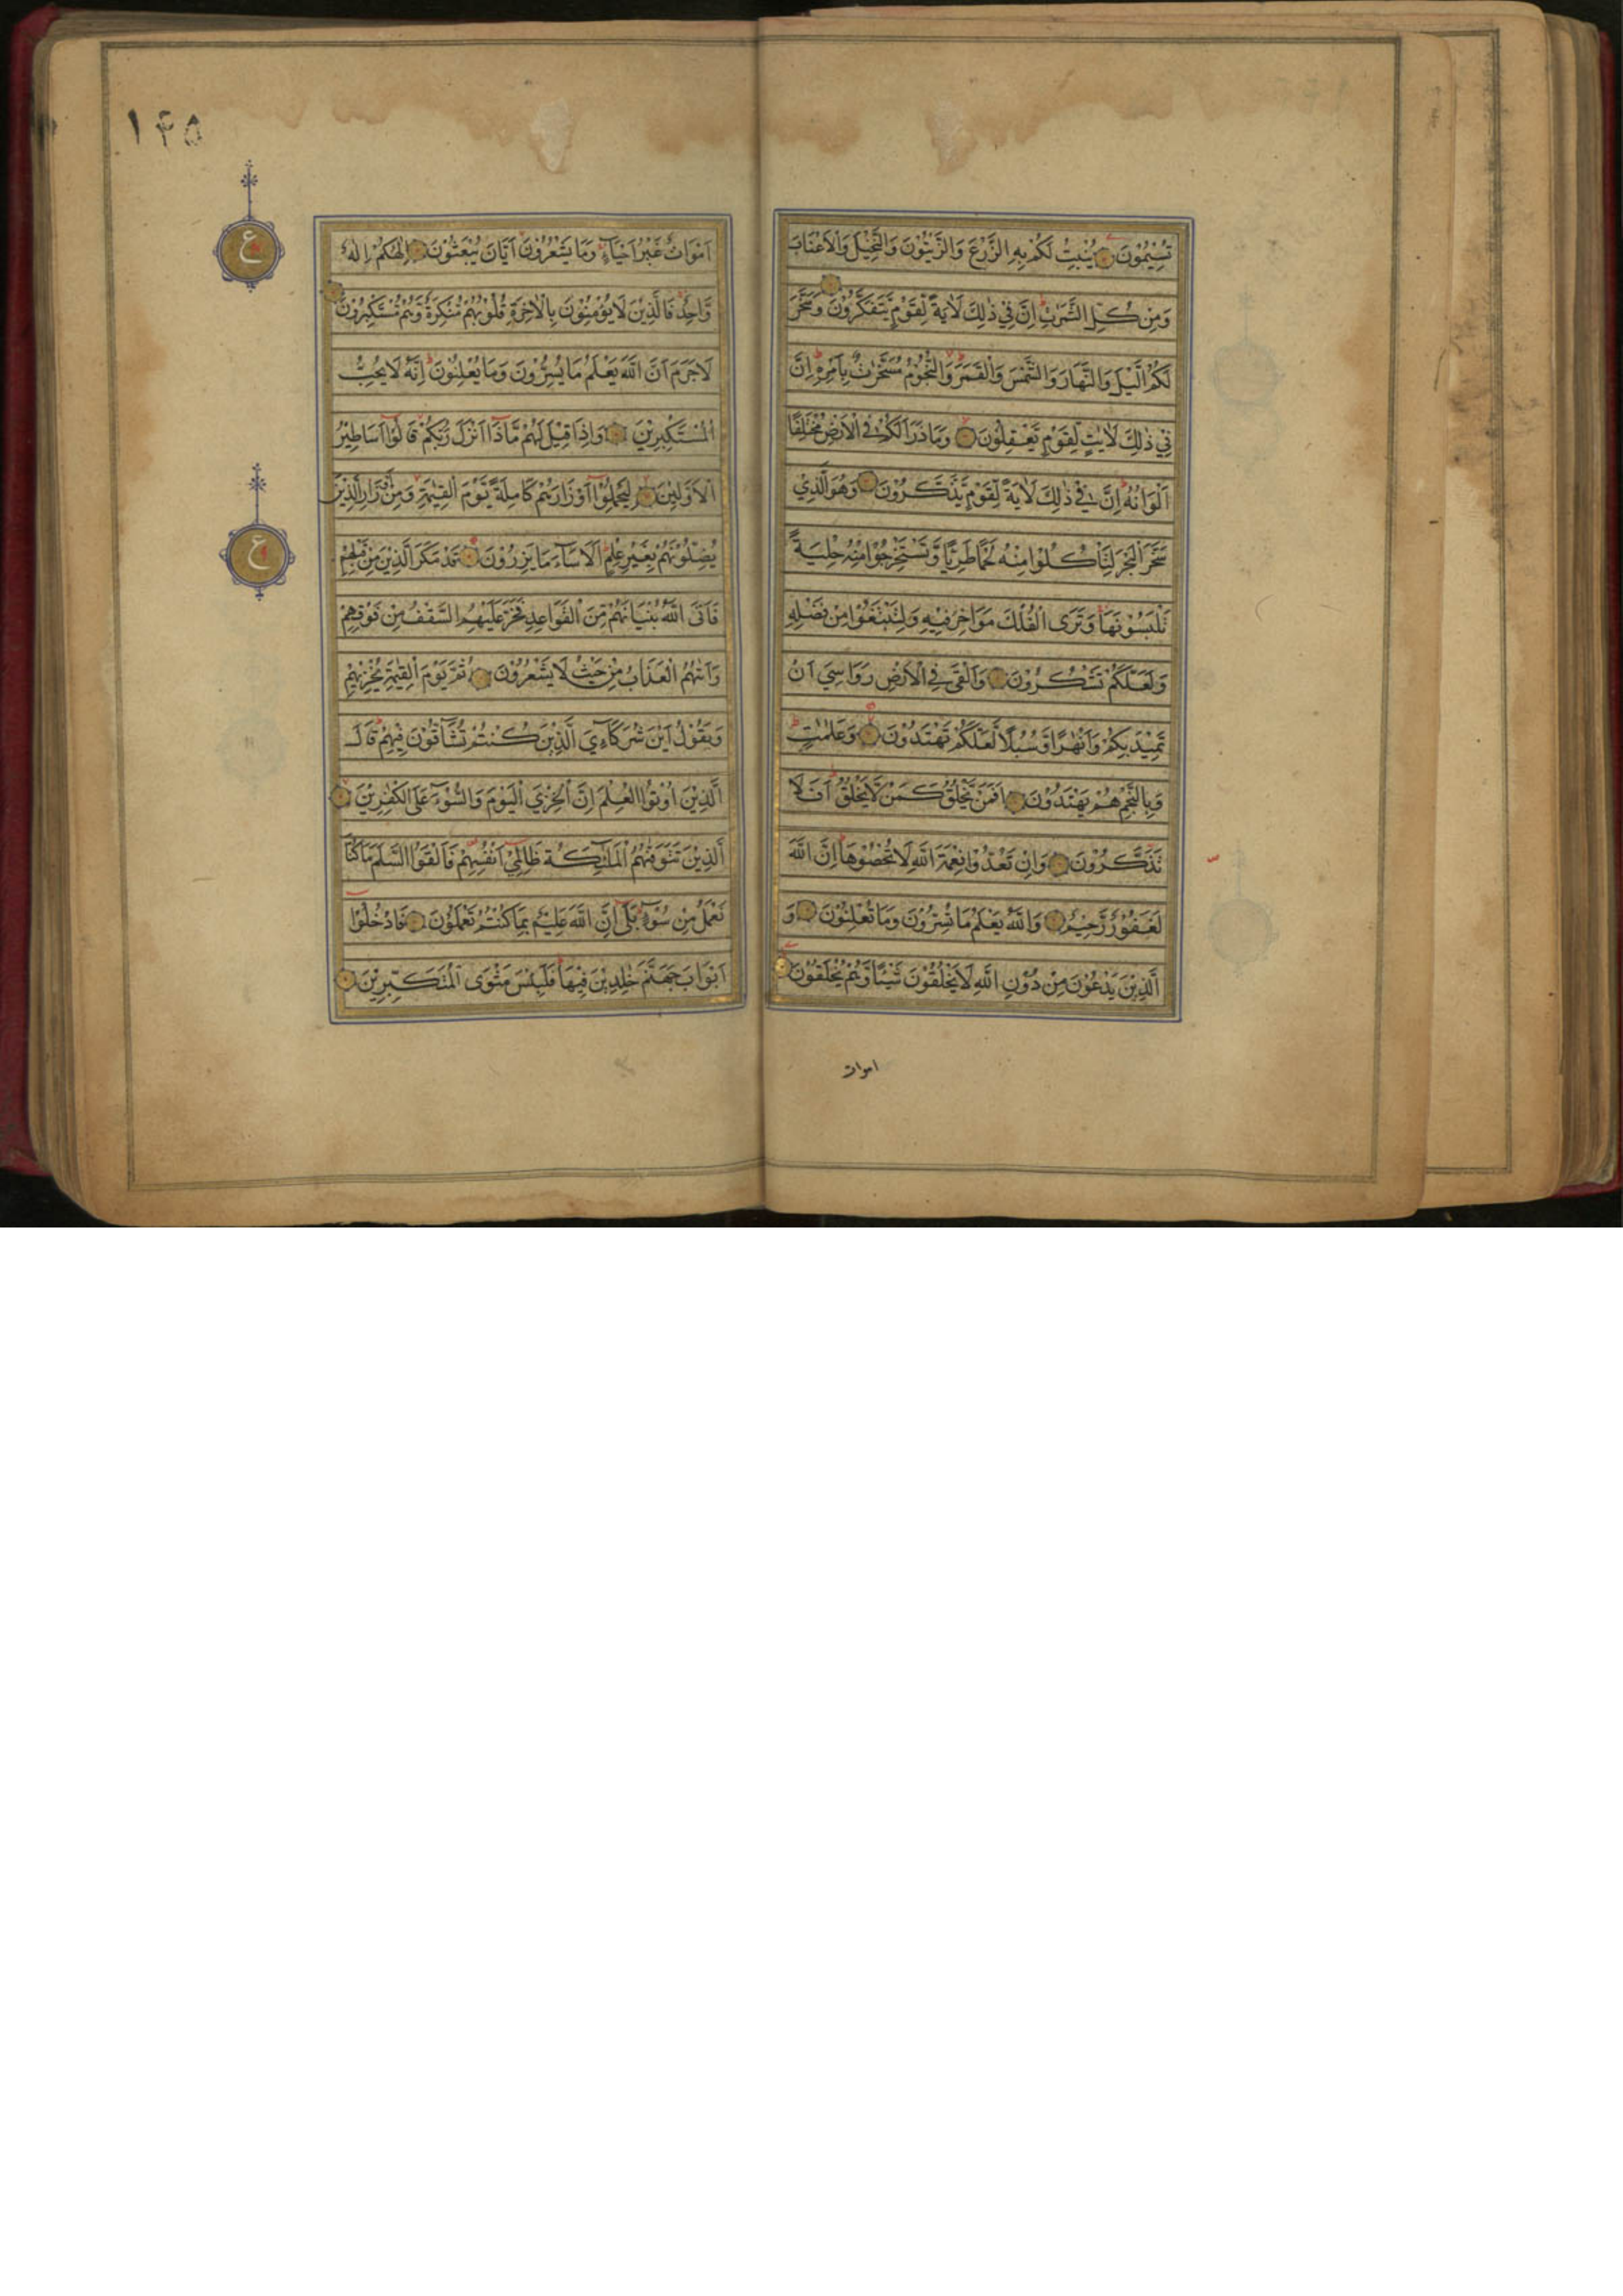 تُسِيْمُوْنَ يُنْبِتُ لَكُمْ بِهِ الزَّرْعَ وَالزَّيْتُوْنَ وَالنَّخِيْلَ وَالْاَعْنَابَ
وَمِنْ كُلِّ الثَّمَرٰتِ اِنَّ فِيْ ذٰلِكَ لَاٰيَةً لِّقَوْمٍ يَّتَفَكَّرُوْنَ وَسَخَّرَ
لَكُمُ الَّيْلَ وَالنَّهَارَ وَالشَّمْسَ وَالْقَمَرَ وَالنُّجُوْمُ مُسَخَّرٰتٌ بِاَمْرِهٖ اِنَّ
فِيْ ذٰلِكَ لَاٰيٰتٍ لِّقَوْمٍ يَّعْقِلُوْنَ وَمَا ذَرَاَ لَكُمْ فِي الْاَرْضِ مُخْتَلِفًا
اَلْوَانُهٗ اِنَّ فِيْ ذٰلِكَ لَاٰيَةً لِّقَوْمٍ يَّذَّكَّرُوْنَ وَهُوَ الَّذِيْ
سَخَّرَ الْبَحْرَ لِتَاْكُلُوْا مِنْهُ لَحْمًا طَرِيًّا وَّتَسْتَخْرِجُوْا مِنْهُ حِلْيَةً
تَلْبَسُوْنَهَا وَتَرَى الْفُلْكَ مَوَاخِرَ فِيْهِ وَلِتَبْتَغُوْا مِنْ فَضْلِهٖ
وَلَعَلَّكُمْ تَشْكُرُوْنَ وَاَلْقٰى فِي الْاَرْضِ رَوَاسِيَ اَنْ
تَمِيْدَ بِكُمْ وَاَنْهٰرًا وَّسُبُلًا لَّعَلَّكُمْ تَهْتَدُوْنَ وَعَلٰمٰتٍ
وَبِالنَّجْمِ هُمْ يَهْتَدُوْنَ اَفَمَنْ يَّخْلُقُ كَمَنْ لَّا يَخْلُقُ اَفَلَا
تَذَكَّرُوْنَ وَاِنْ تَعُدُّوْا نِعْمَةَ اللّٰهِ لَا تُحْصُوْهَا اِنَّ اللّٰهَ
لَغَفُوْرٌ رَّحِيْمٌ وَاللّٰهُ يَعْلَمُ مَا تُسِرُّوْنَ وَمَا تُعْلِنُوْنَ وَ
الَّذِيْنَ يَدْعُوْنَ مِنْ دُوْنِ اللّٰهِ لَا يَخْلُقُوْنَ شَيْئًا وَّهُمْ يُخْلَقُوْنَ
اموات
۱۴۵
اَمْوَاتٌ غَيْرُ اَحْيَآءٍ وَمَا يَشْعُرُوْنَ اَيَّانَ يُبْعَثُوْنَ اِلٰهُكُمْ اِلٰهٌ
ع
وَّاحِدٌ فَالَّذِيْنَ لَا يُؤْمِنُوْنَ بِالْاٰخِرَةِ قُلُوْبُهُمْ مُّنْكِرَةٌ وَّهُمْ مُّسْتَكْبِرُوْنَ
لَا جَرَمَ اَنَّ اللّٰهَ يَعْلَمُ مَا يُسِرُّوْنَ وَمَا يُعْلِنُوْنَ اِنَّهٗ لَا يُحِبُّ
الْمُسْتَكْبِرِيْنَ وَاِذَا قِيْلَ لَهُمْ مَّاذَا اَنْزَلَ رَبُّكُمْ قَالُوْا اَسَاطِيْرُ
الْاَوَّلِيْنَ لِيَحْمِلُوْا اَوْزَارَهُمْ كَامِلَةً يَّوْمَ الْقِيٰمَةِ وَمِنْ اَوْزَارِ الَّذِيْنَ
يُضِلُّوْنَهُمْ بِغَيْرِ عِلْمٍ اَلَا سَآءَ مَا يَزِرُوْنَ قَدْ مَكَرَ الَّذِيْنَ مِنْ قَبْلِهِمْ
ع
فَاَتَى اللّٰهُ بُنْيَانَهُمْ مِّنَ الْقَوَاعِدِ فَخَرَّ عَلَيْهِمُ السَّقْفُ مِنْ فَوْقِهِمْ
وَاَتٰىهُمُ الْعَذَابُ مِنْ حَيْثُ لَا يَشْعُرُوْنَ ثُمَّ يَوْمَ الْقِيٰمَةِ يُخْزِيْهِمْ
وَيَقُوْلُ اَيْنَ شُرَكَآءِيَ الَّذِيْنَ كُنْتُمْ تُشَآقُّوْنَ فِيْهِمْ قَالَ
الَّذِيْنَ اُوْتُوا الْعِلْمَ اِنَّ الْخِزْيَ الْيَوْمَ وَالسُّوْٓءَ عَلَى الْكٰفِرِيْنَ
الَّذِيْنَ تَتَوَفّٰىهُمُ الْمَلٰٓئِكَةُ ظَالِمِيْ اَنْفُسِهِمْ فَاَلْقَوُا السَّلَمَ مَا كُنَّا
نَعْمَلُ مِنْ سُوْٓءٍ بَلٰى اِنَّ اللّٰهَ عَلِيْمٌ بِمَا كُنْتُمْ تَعْمَلُوْنَ فَادْخُلُوْا
اَبْوَابَ جَهَنَّمَ خٰلِدِيْنَ فِيْهَا فَلَبِئْسَ مَثْوَى الْمُتَكَبِّرِيْنَ